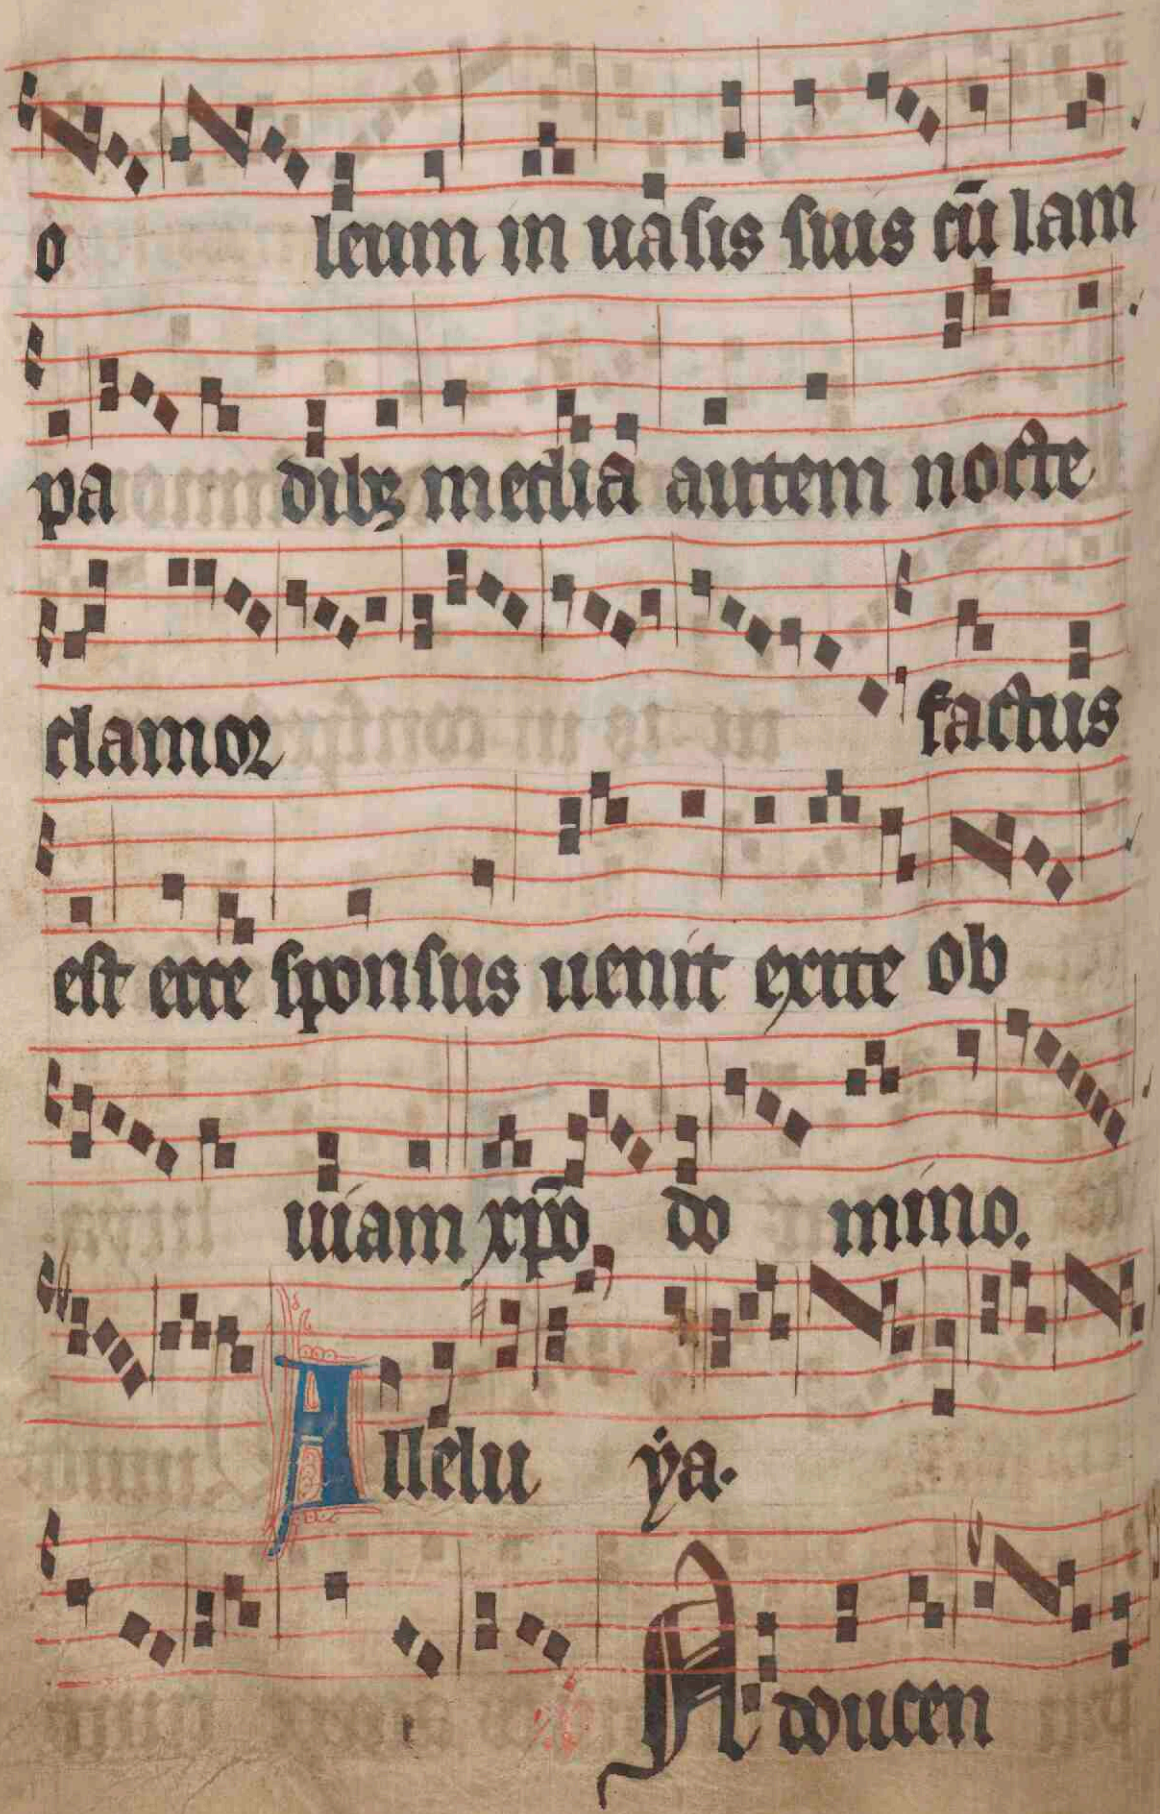 o leum in uasis suis cū lam
pa dibꝫ media autem nocte
clamor factus
est ecce sponsus uenit exite ob
uiam xp̄o do mino.
Allelu ẏa.
Adducen